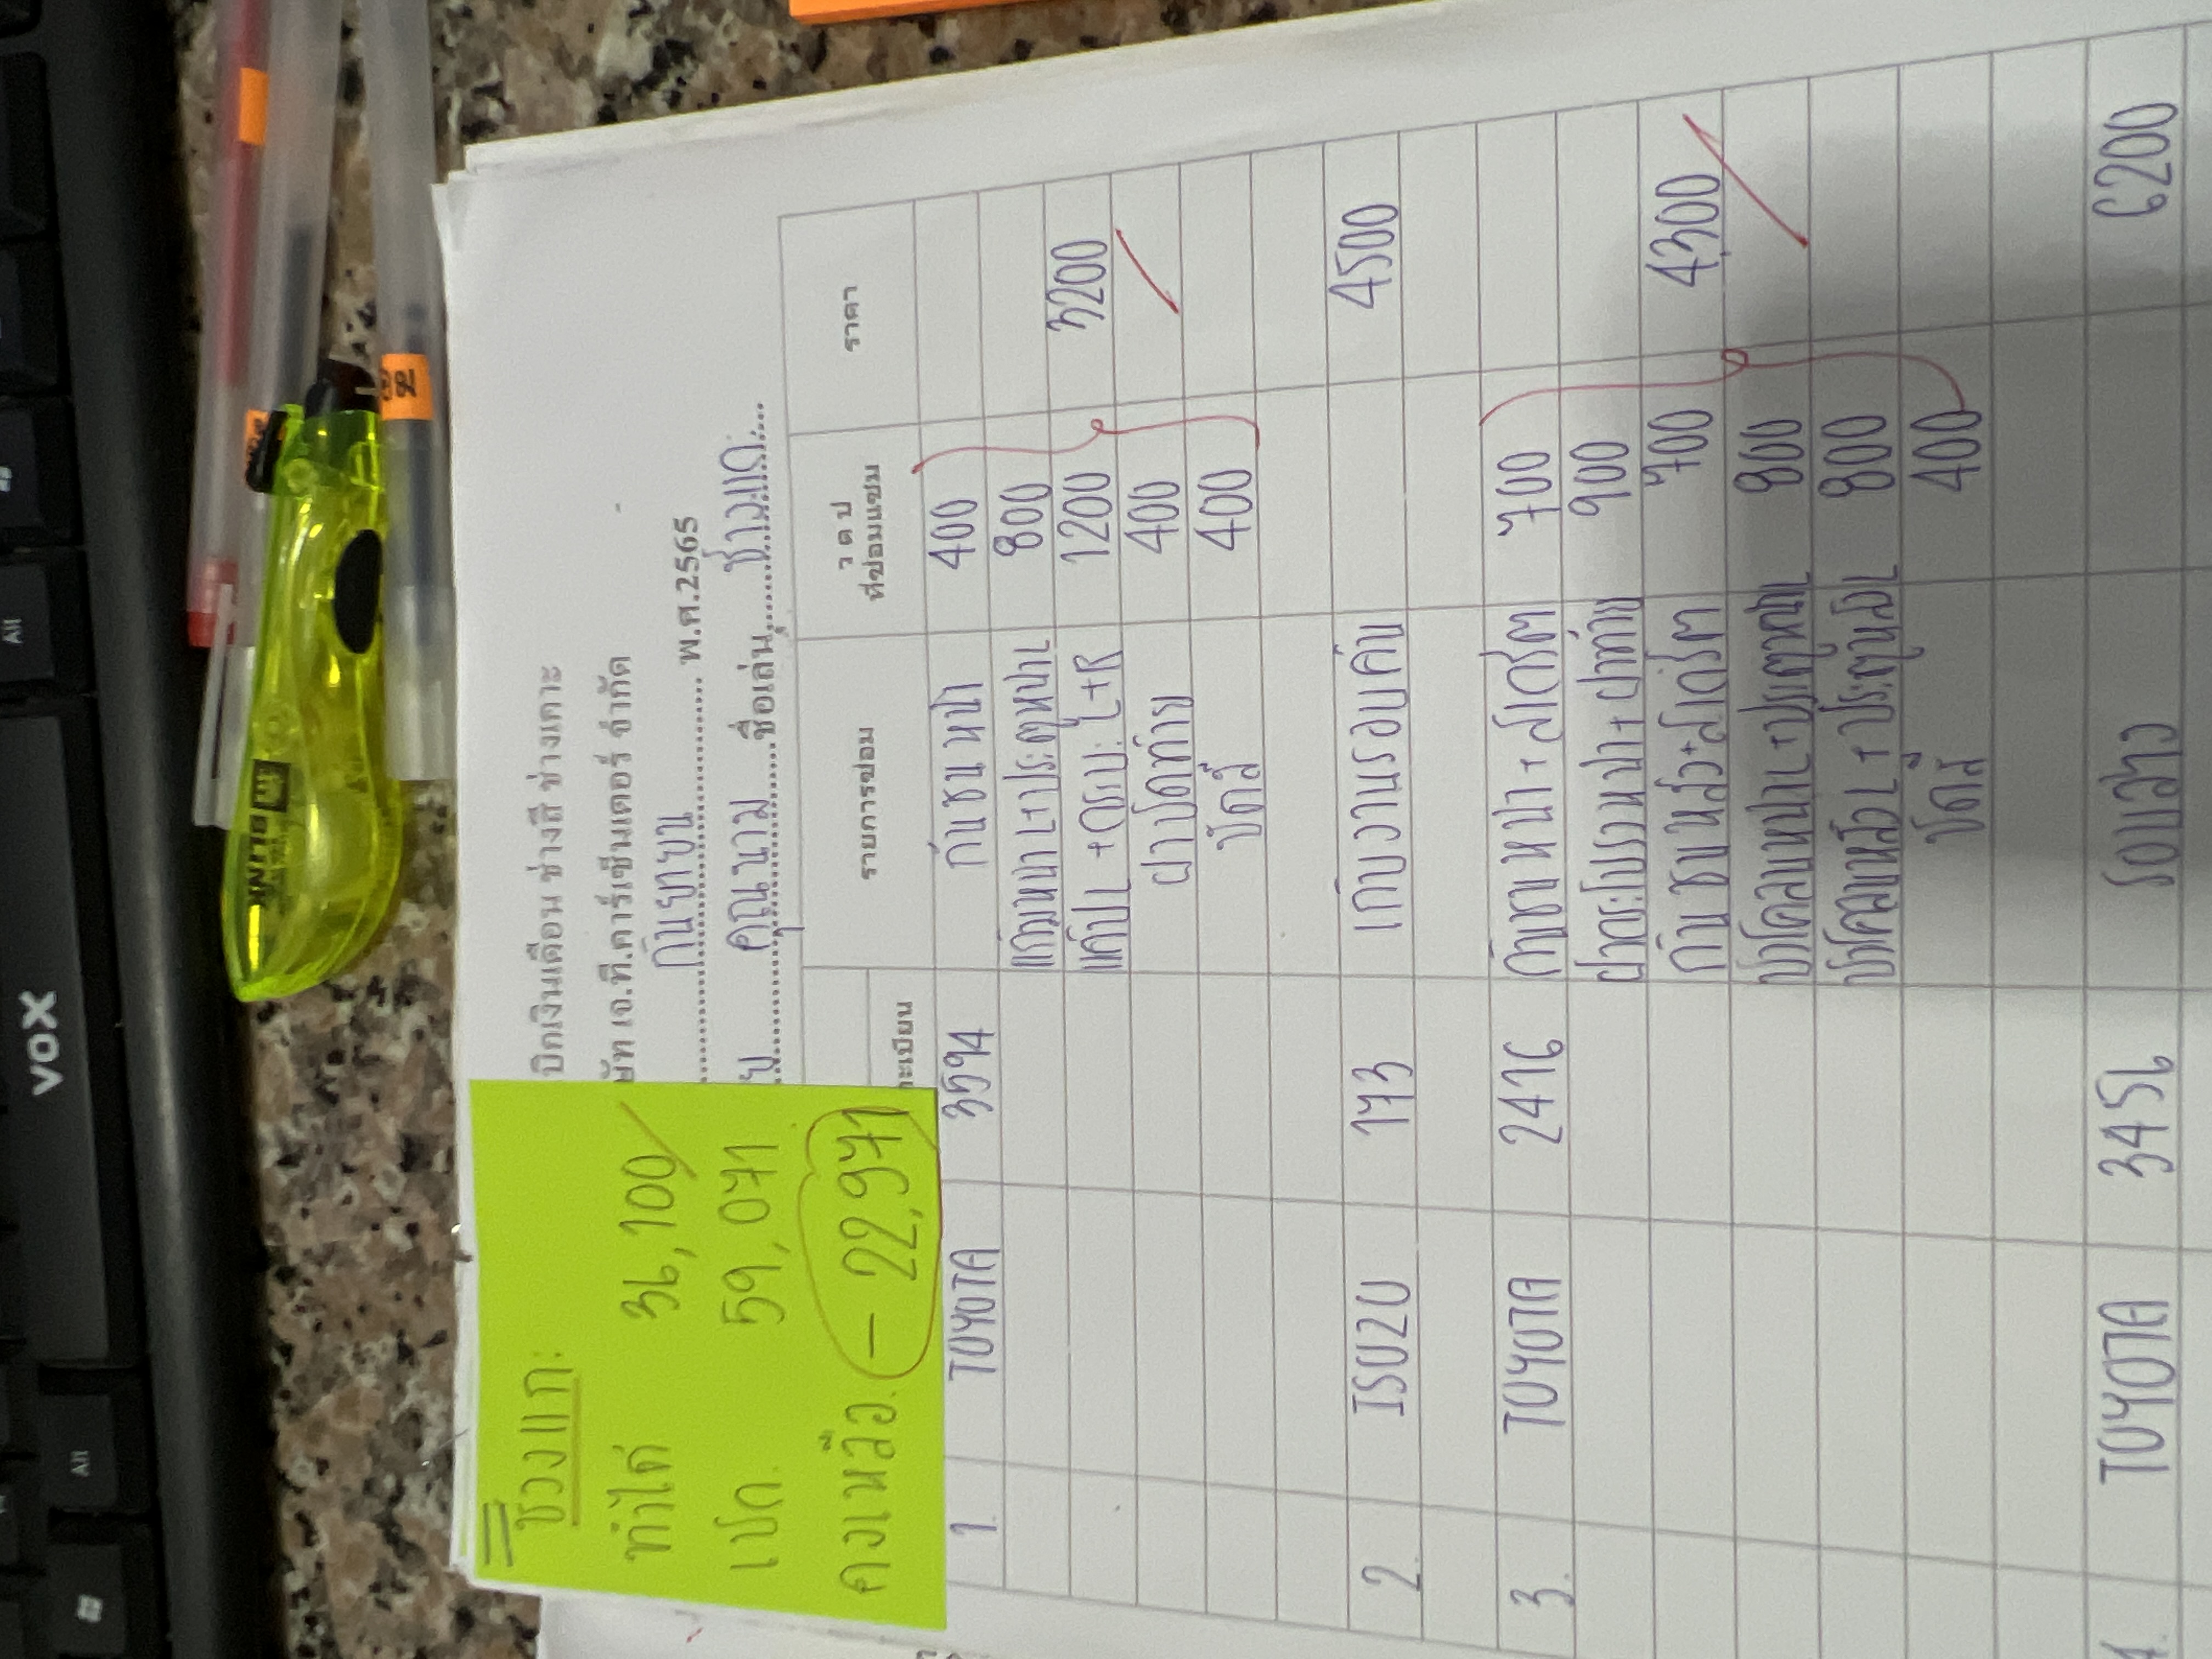 ช่วงแก:
ทำได้ 36,100/
เบิก. 59,071
คงเหลือ. - 22,971
บิกเงินเดือน ช่างสี ช่างเกาะ
ษัท เจ.ที.คาร์เซ็นเตอร์ จำกัด
กันยายน พ.ศ.2565
คุณนาม ชื่อเล่น ช่างแก
ะเบียน รายการซ่อม ว ด ป ที่ซ่อมแซม ราคา
1. TOYOTA 3594 กันชนหน้า 400
แก้มหน้าL+ประตูหน้าL 800
แค๊ปL+กระบะ L+R 1200 3200
ฝาปิดท้าย 400
ขัดสี 400
2. ISUZU 173 เก็บงานรอบคัน 4500
3. TOYOTA 2416 กันชนหน้า+สเกิร์ต 700
ฝากระโปรงหน้า+ฝาท้าย 900
กันชนหลัง+สเกิร์ต 700 4,300
บังโคลนหน้าL+ประตูหน้าL 800
บังโคลนหลังL+ประตูหลังL 800
ขัดสี 400
4. TOYOTA 3456 รอบสาว 6200
VOX
Alt
Alt